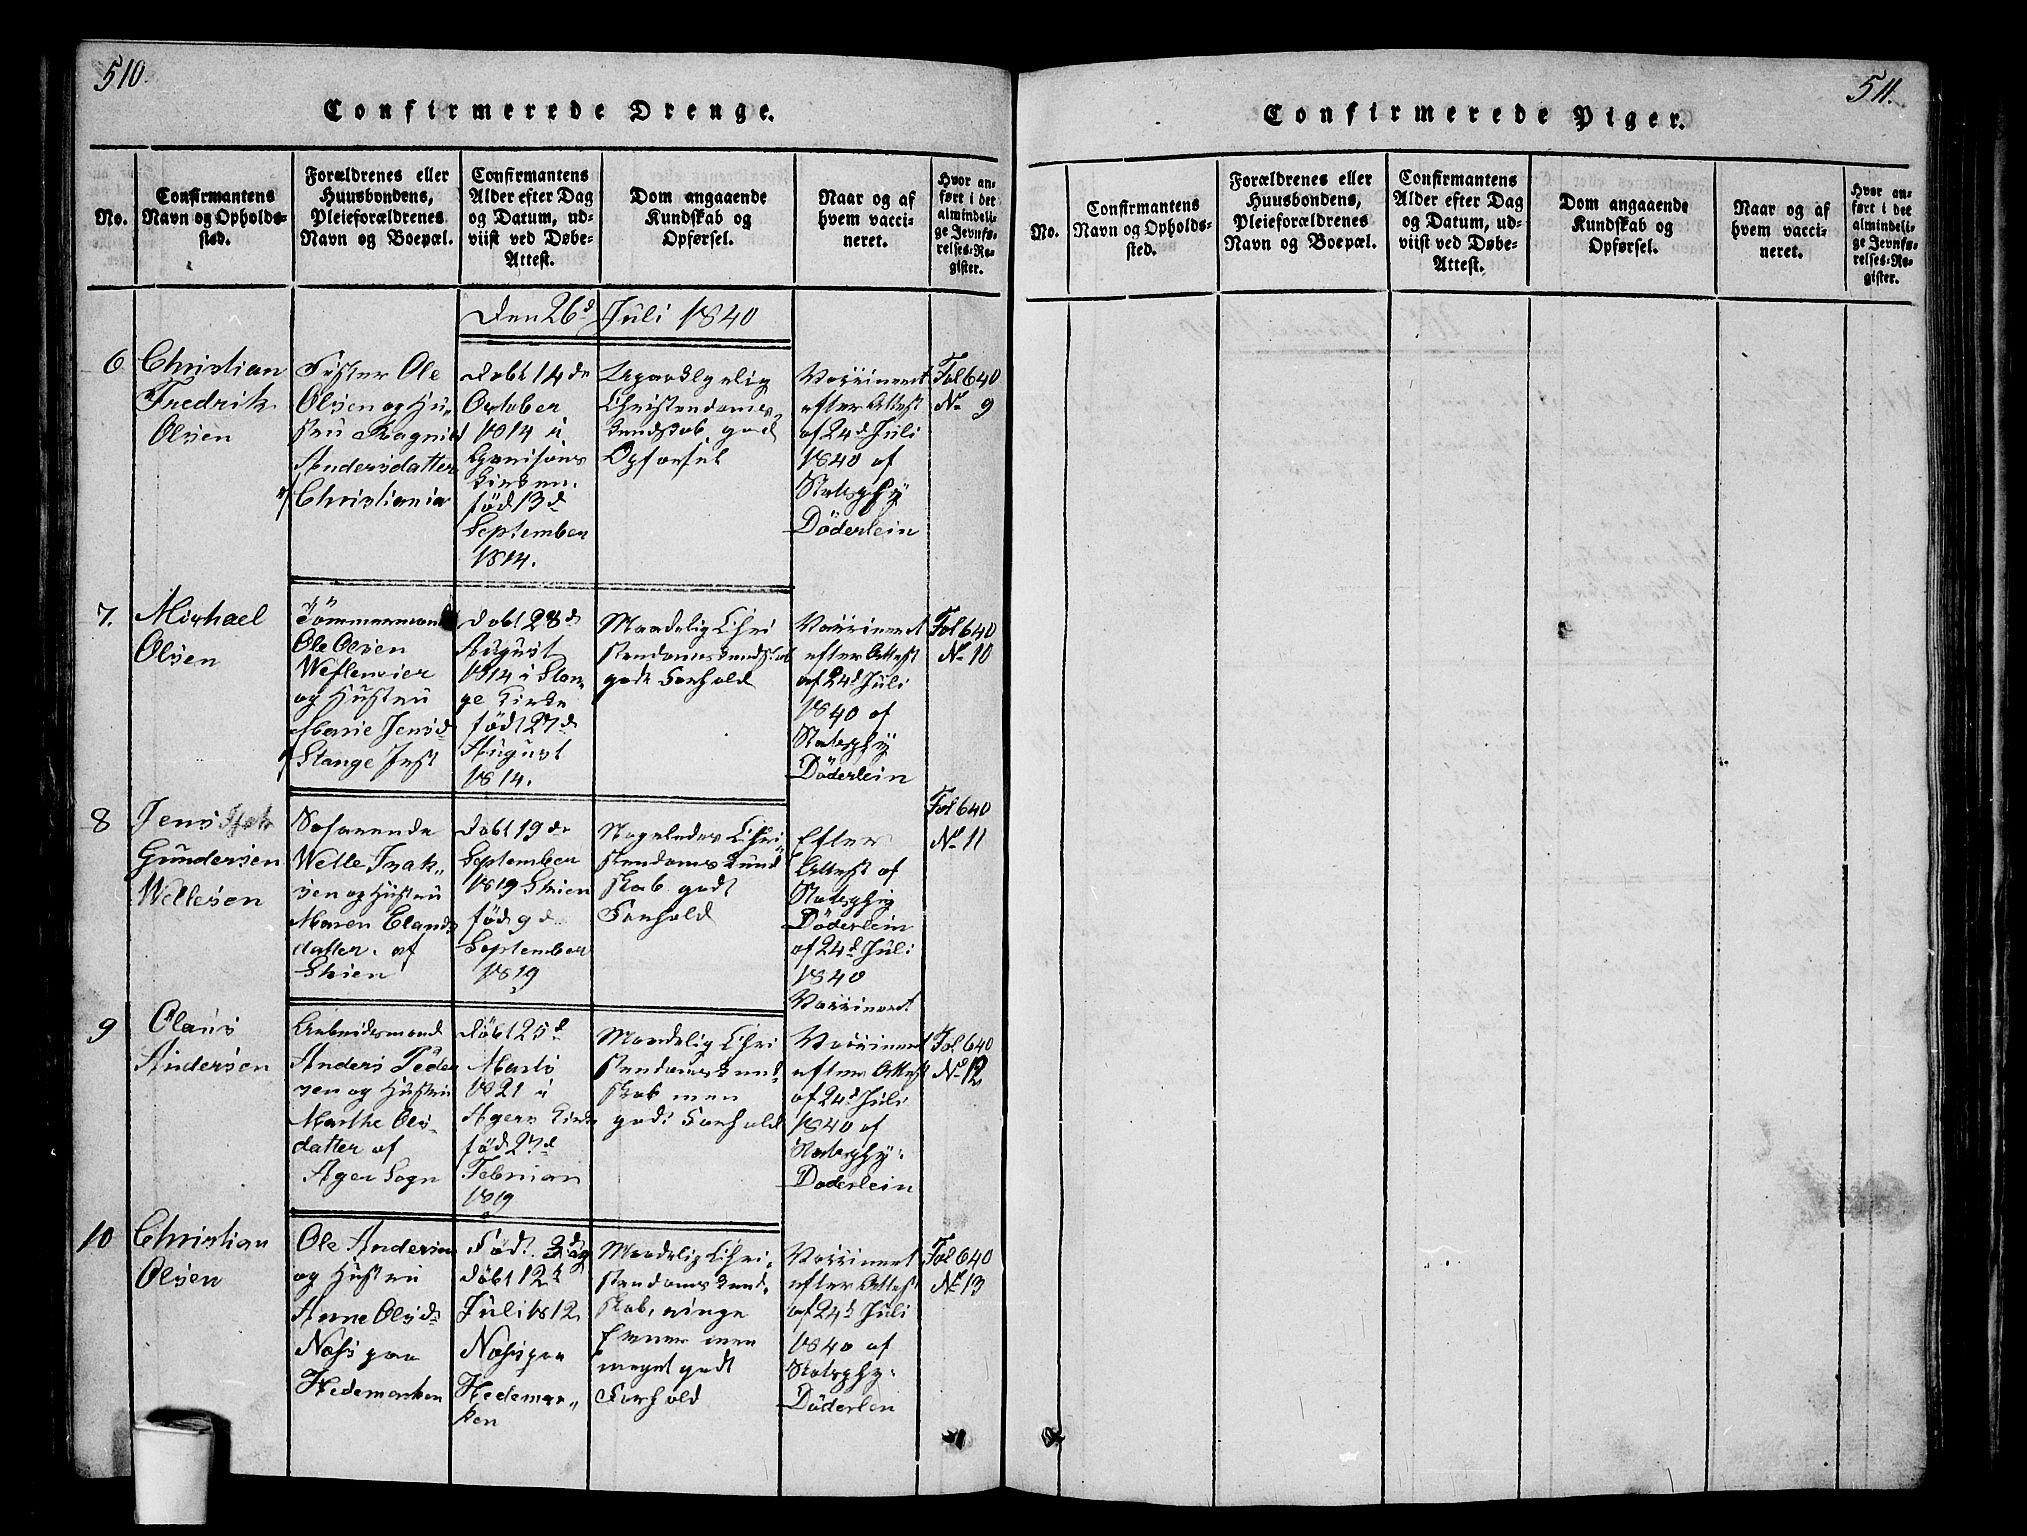 510.
Confirmerede Drenge.
No.
Confirmantens
Navn og Opholds-
sted.
Forældrenes eller
Huusbondens,
Pleieforældrenes
Navn og Boepæl.
Confirmantens
Alder efter Dag
og Datum, ud-
viist ved Døbe-
Attest.
Dom angaaende
Kundskab og
Opførsel.
Naar og af
hvem vacci-
neret.
Hvor an-
ført i det
almindeli-
ge Jevnfø-
relses-Re-
gister.
Den 26d Juli 1840
6
Christian
Fredrik
Olsen
Ole
Olsen og Hu-
stru Ragnild
Andersdatter
Christiania
Døbt 14de
October
1814 i
Garnisons
Kirken.
fød 13d
September
1814.
Christendoms-
kundskab god
Opførsel
Vaccineret
efter Attest
af 24d Juli
1840 af
Statsphy
Döderlein
Fol 640
No 9
7.
Michael
Olsen
Tömmermand
Ole Olsen
og Hustru
Marie Jensd
Stange
Døbt 28de
August
1814 i Stan-
ge Kirke
födt 27de
August
1814.
Maadelig Chri
stendomskundskab
godt Forhold
Vaccineret
efter Attest
af 24d Juli
1840 af
Statsphy
Döderlein
Fol 640
No 10
8
Jens
Gundersen
Wellesen
Søfarende
Welle Isak-
sen og Hustru
Maren Elands
datter. af
Skien
Døbt 19de
September
1819 Skien
fød 9de
September
1819
Nogenledes Chri-
stendoms Kund
skab godt
Forhold
Efter
Attest af
Statsphy
Döderlein
af 24d Juli
1840
Vaccineret
Fol 640
No 11
9
Olaus
Andersen
Arbeidsmand
Anders Peder
sen og Hustru
Marthe Ols-
datter af
Ager Sogn
Döbt 25d
Marts
1821 i
Agers Kirke
fød 27d
Februari
1819
Maadelig Chri
stendomskund-
skab men
godt Forhold
Vaccineret
efter Attest
af 24d Juli
1840 af
Statsphy:
Döderlein
Fol 640
No 12
10
Christian
Olsen
Ole Andersen
og Hustru
Anne Olsd
Næss paa
Hedemarken
Födt 3d og
döbt 12te
Juli 1812
Næss paa
Hedemar-
ken
Maadelig Chri-
stendomskund-
skab, ringe
Evner men
meget godt
Forhold
Vaccineret
efter Attest
af 24d Juli
1840 af
Statsphy:
Döderlen
Fol 640
No 13
511.
Confirmerede Piger.
No.
Confirmantens
Navn og Opholds-
sted.
Forældrenes eller
Huusbondens,
Pleieforældrenes
Navn og Boepæl.
Confirmantens
Alder efter Dag
og Datum, ud-
viist ved Døbe-
Attest.
Dom angaaende
Kundskab og
Opførsel.
Naar og af
hvem vacci-
neret.
Hvor an-
ført i det
almindeli-
ge Jevnfø-
relses-Re-
gister.